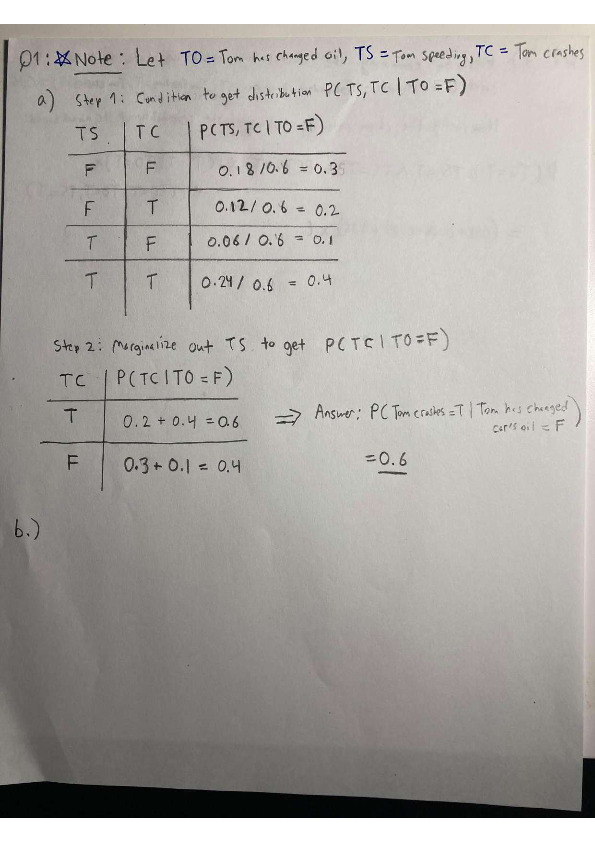 Q1: ☆ Note: Let TO = Tom has changed oil, TS = Tom speeding, TC = Tom crashes
a) Step 1: Condition to get distribution P(TS, TC | TO = F)
TS TC P(TS, TC | TO = F)
F F 0.18 / 0.6 = 0.3
F T 0.12 / 0.6 = 0.2
T F 0.06 / 0.6 = 0.1
T T 0.24 / 0.6 = 0.4
Step 2: Marginalize out TS to get P(TC | TO = F)
TC P(TC | TO = F)
T 0.2 + 0.4 = 0.6 ⇒ Answer: P(Tom crashes = T | Tom has changed
car's oil = F)
F 0.3 + 0.1 = 0.4 = 0.6
b.)